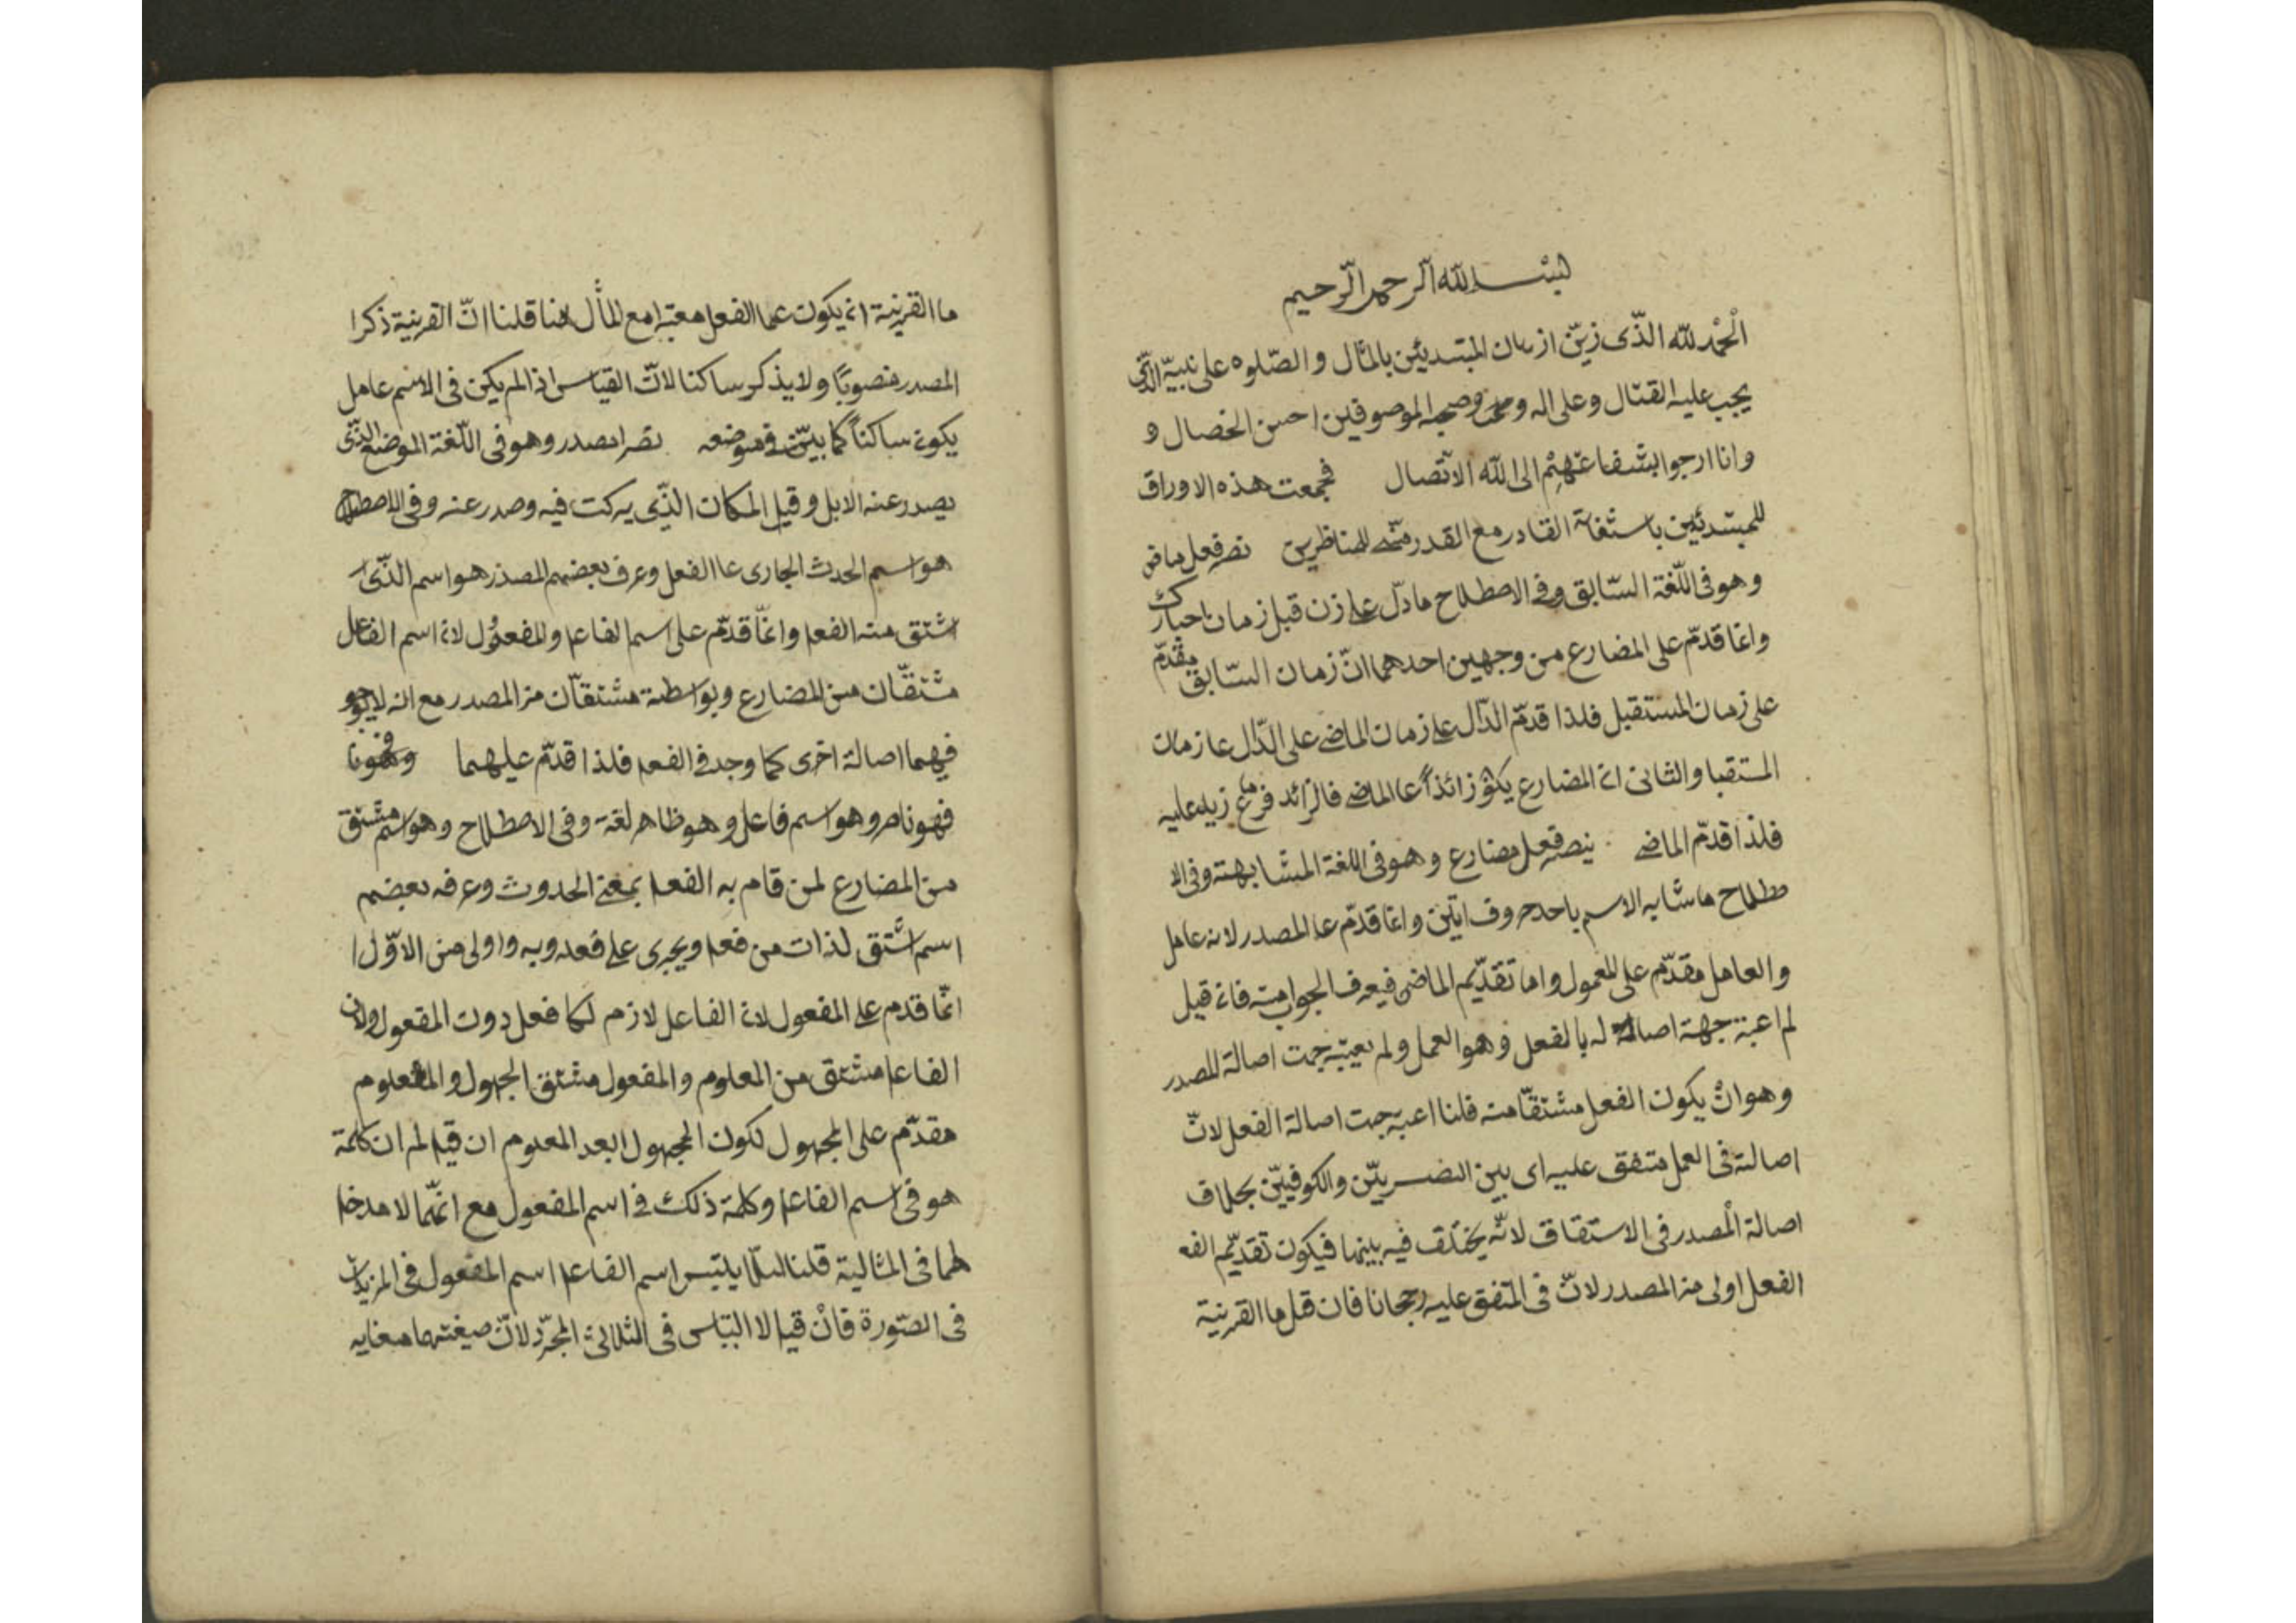 بسم الله الرحمن الرحيم
الحمد لله الذى زين ازهان المبتدئين بالمثال والصلوه على نبيه الذى
يجب عليه القتال وعلى اله وصحبه الموصوفين احسن الخصال و
وانا ارجوا بشفاعتهم الى الله الاتصال فجمعت هذه الاوراق
للمبتدئين باستغاثة القادر مع القدر للمناظرين نصر فعل ماض
وهو فى اللغة السابق وفى الاصطلاح مادل على زمن قبل زمان اخبارك
وانما قدم على المضارع من وجهين احدهما ان زمان السابق مقدم
على زمان المستقبل فلذا قدم الدال على زمان الماضى على الدال على زمان
المستقبل والثانى ان المضارع يكون زائدا على الماضى فالزائد فرع ما زيد عليه
فلذا قدم الماضى ينصر فعل مضارع وهو فى اللغة المشابهته وفى الا
صطلاح ما شابه الاسم باحد حروف اتين وانما قدم على المصدر لانه عامل
والعامل مقدم على المعمول واما تقديم الماضى فيعرف الجواب منه فان قيل
لم اعتبر جهة اصالة له بالفعل وهو العمل ولم يعتبر جهت اصالة للمصدر
وهو ان يكون الفعل مشتقا منه قلنا اعتبر جهت اصالة الفعل لان
اصالته فى العمل متفق عليه اى بين البصريين والكوفيين بخلاف
اصالة المصدر فى الاستقاق لانه يختلف فيه بينهما فيكون تقديم الفعـ
الفعل اولى من المصدر لان فى المتفق عليه رجحانا فان قل ما القرينة
ما القرينة ان يكون عمل الفعل معتبرا مع المثال هنا قلنا ان القرينة ذكرا
المصدر منصوبا ولا يذكر ساكنا لان القياس اذا لم يكن فى الاسم عامل
يكون ساكنا كما بين فى موضعه نصرا مصدر وهو فى اللغة الموضع الذى
يصدر عنه الابل وقيل المكان الذى يركت فيه وصدر عنه وفى الاصطلاح
هو اسم الحدث الجارى على الفعل وعرف بعضهم المصدر هو اسم الذى
اشتق منه الفعل وانما قدم على اسم الفاعل والمفعول لان اسم الفاعل
مشتقان من المضارع وبواسطة مشتقان من المصدر مع انه لا يوجد
فيهما اصالة اخرى كما وجد فى الفعل فلذا قدم عليهما
فهو ناصر وهو اسم فاعل وهو ظاهر لغة وفى الاصطلاح وهو اسم مشتق
من المضارع لمن قام به الفعل بمعنى الحدوث وعرفه بعضهم
اسم اشتق لذات من فعل ويجرى على فعله وبه واولى من الاول ا
انما قدم على المفعول لان الفاعل لازم لكل فعل دون المفعول ولان
الفاعل مشتق من المعلوم والمفعول مشتق الجهول والمعلوم
مقدم على المجهول لكون المجهول ابعد المعلوم ان قيل لم ان كلمة
هو فى اسم الفاعل وكلمة ذلك فى اسم المفعول مع انهما لا مدخل
لهما فى المثالية قلنا لئلا يلتبس اسم الفاعل اسم المفعول فى المزيدات
فى الصورة فان قيل لا التباس فى الثلاثى المجرد لان صيغتهما مغايه